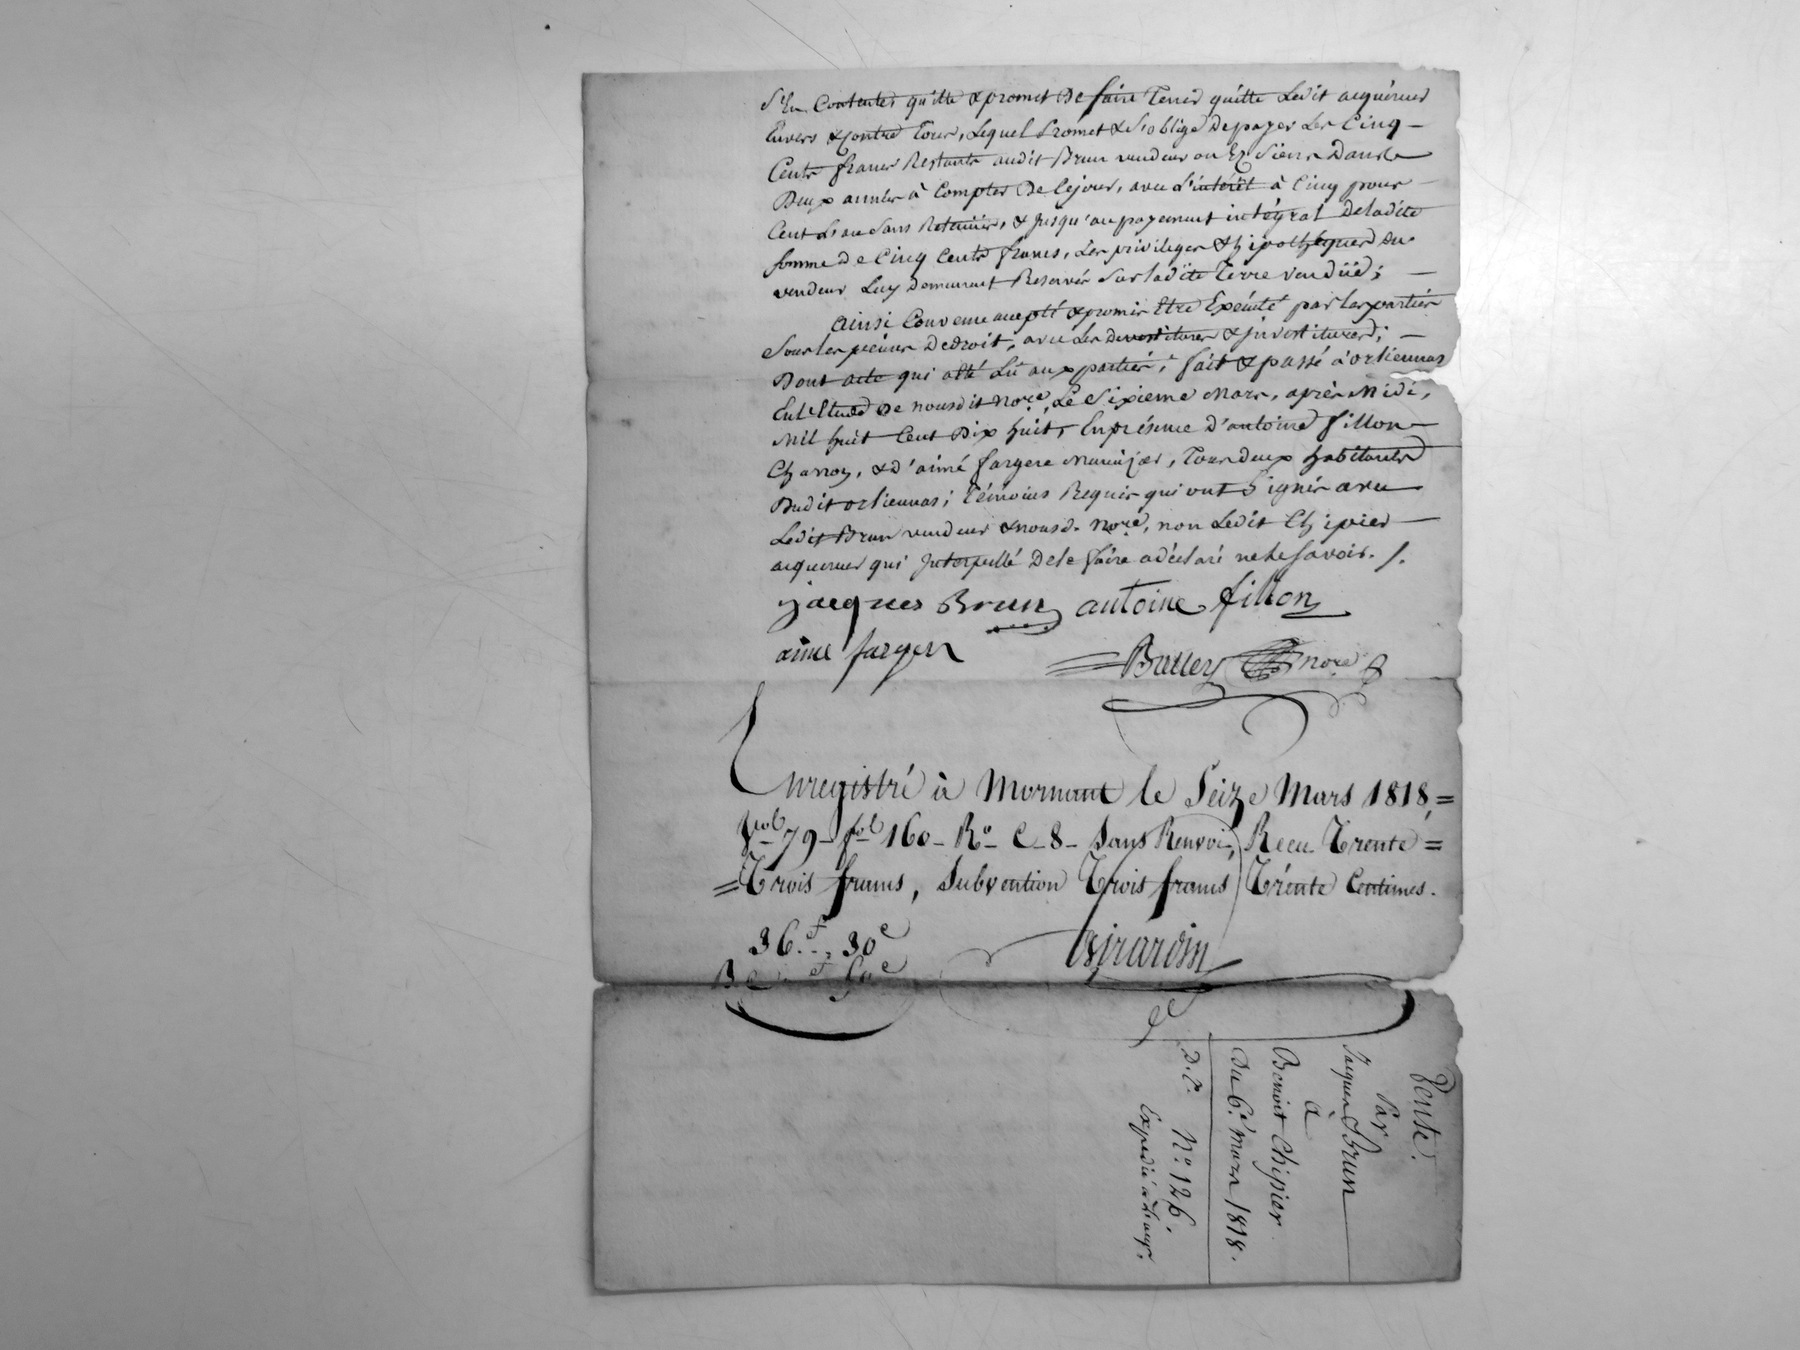 S'En Contente, quitte & promet De faire Tenir quitte Ledit acquéreur
Envers & Contre Tous, Lequel Promet & S'oblige De payer Les Cinq
Cents francs Restants audit Brun vendeur ou Es Siens Dans
Deux années à Compter De Cejour, avec L'intérêt à Cinq pour
Cent L'an Sans Retenüe, & Jusqu'au payement intégral Deladite
somme De Cinq Cents francs, Les privileges & hipothéques du
vendeur Luy Demeurent Reservés Sur ladite Terre vendüe;
Ainsi Convenu accepté & promis Etre Exécuté par les parties
Sous les peines De droit, avec Les devestitures & investitures;
Dont acte qui a été Lû aux parties; fait & passé à orliennas
En L'Etude De nousdit Nore, Le Sixieme Mars, après Midi,
Mil huit Cent Dix huit, En présence D'antoine fillon
Charron, & D'aimé fargere Menuizier, Tous deux habitants
Dudit orliennas; témoins Requis qui ont Signés avec
Ledit Brun vendeur & nousd. Nore, non Ledit Chipier
acquereur qui Interpellé De le faire a déclaré ne le Savoir. /.
jacques Brun antoine fillon
aime fargere
nore
Enregistré à Mornant le Seize Mars 1818,=
Vol 79- fol 160- Ro- C-8- Sans Renvoi, Recu Trente=
=Trois francs, Subvention Trois francs Trente Centimes.
36.f., 30c
Girardin
Vente.
Par
Jacques Brun
A
Benoit Chipier
Du 6.e mars 1818.
D.C. No. 126.
Expedié à L'acqr.